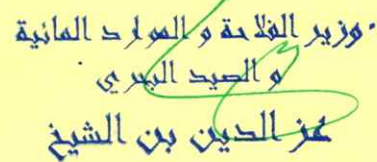 وزير الفلاحة و الموارد المائية
و الصيد البحري
عز الدين بن الشيخ